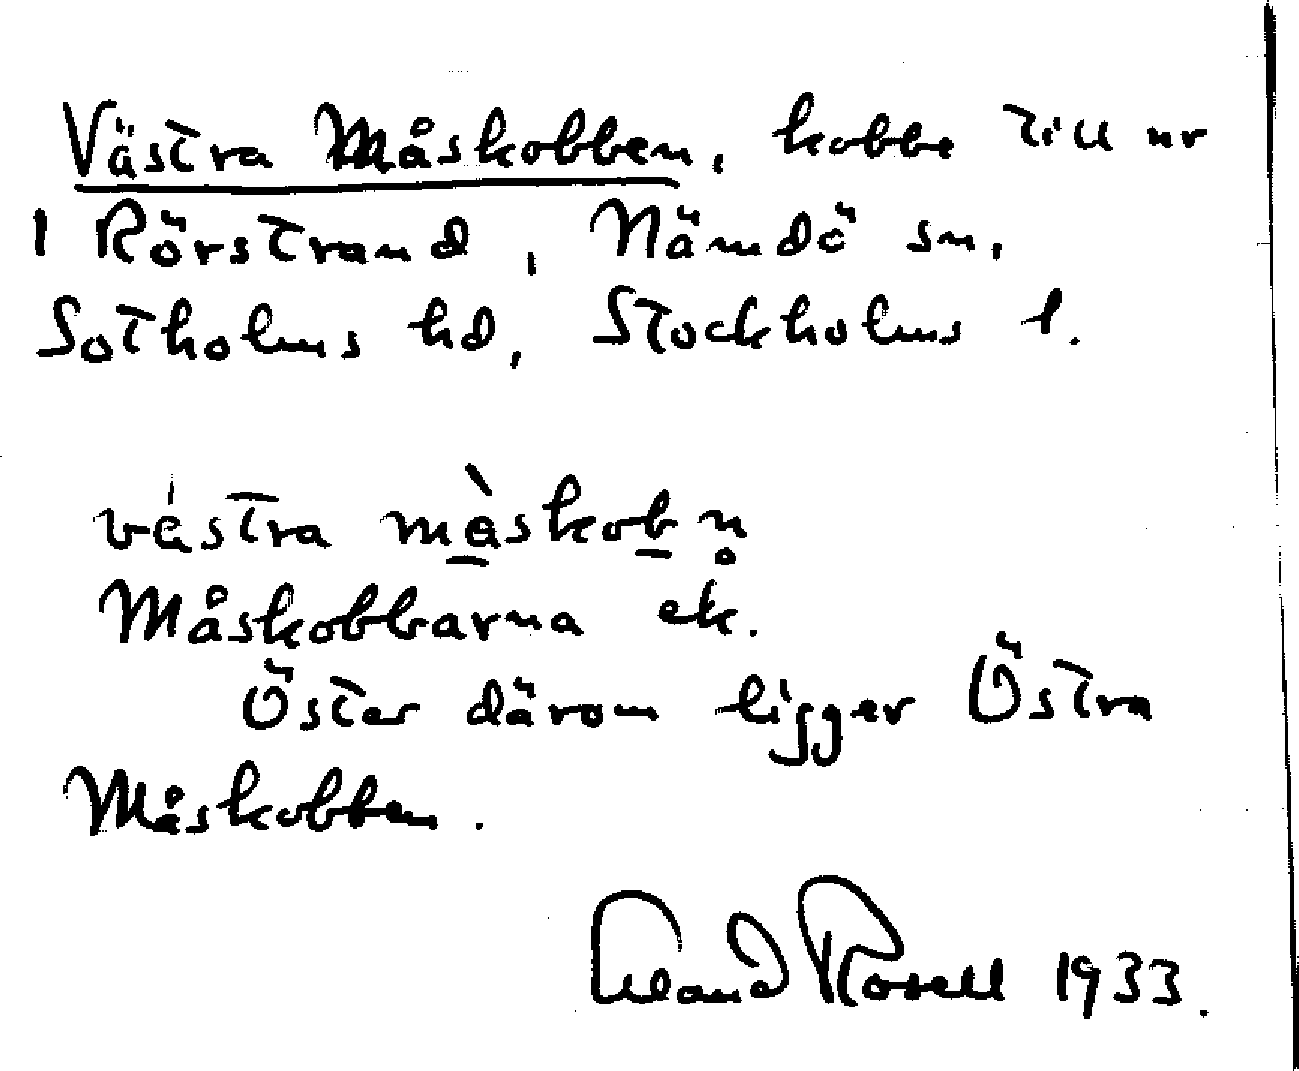 Västra Måskobben, kobbe till nr
1 Rörstrand, Nämdö sn,
Sotholms hd, Stockholms l.
véstra mèskob̲n̥
Måskobbarna ek.
Öster därom ligger Östra
Måskobben.
Rosell 1933.